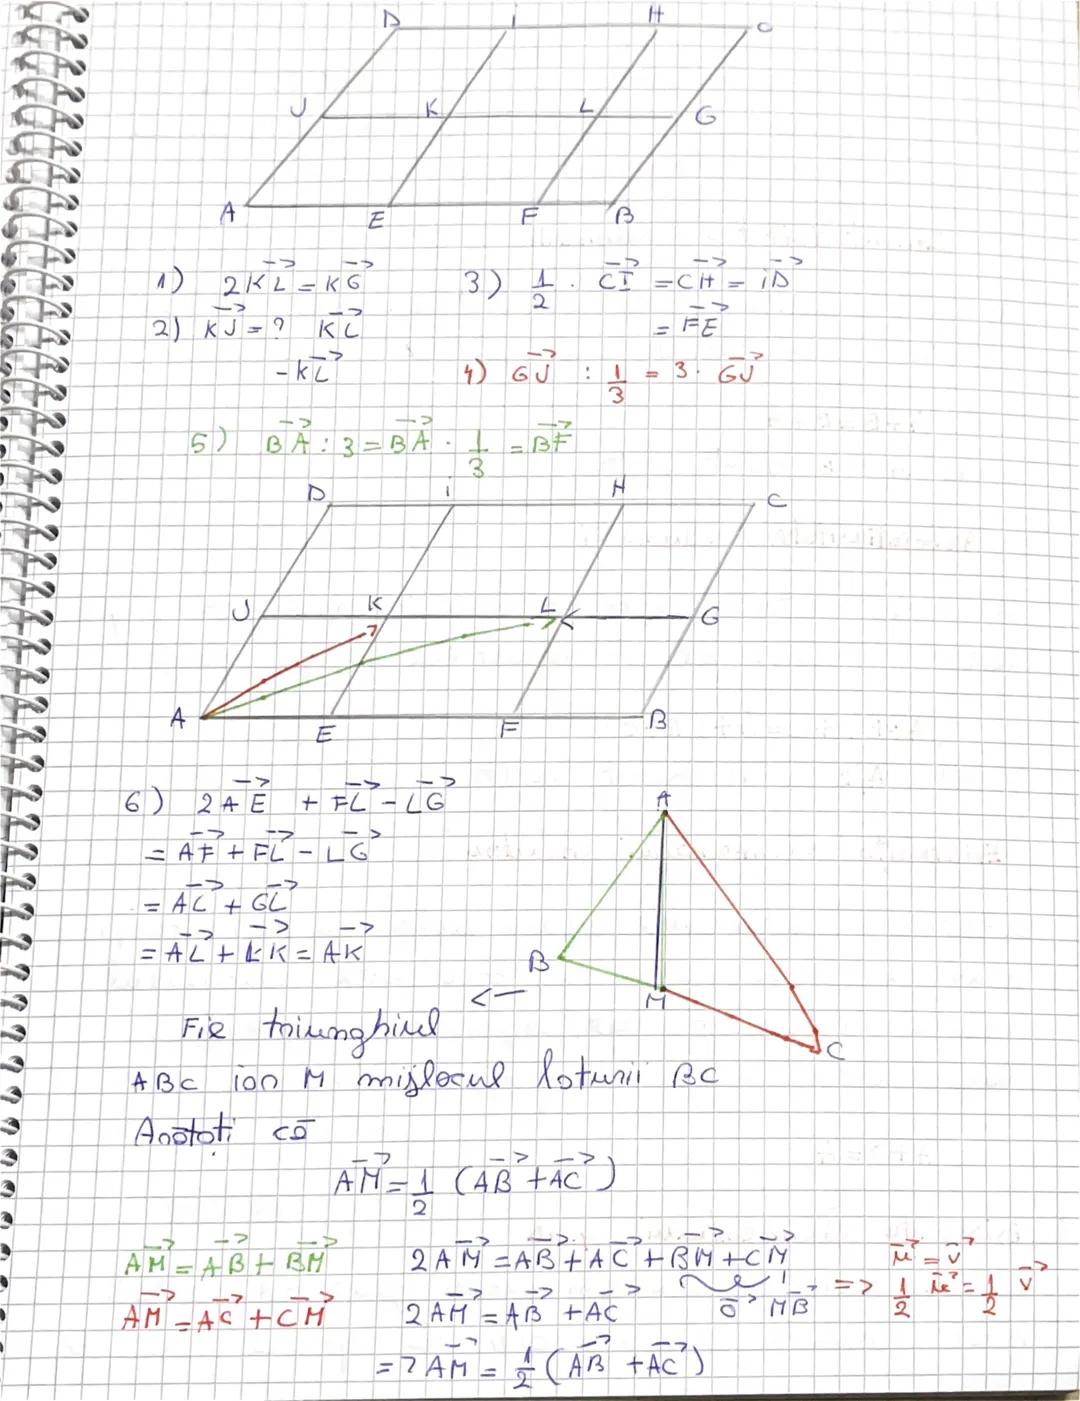 D I H C
J K L G
A E F B
1) 2KL⃗ = KG⃗
3) 1/2 · CI⃗ = CH⃗ = iD⃗
= FE⃗
2) KJ⃗ = ? KL⃗
-KL⃗
4) GJ⃗ : 1/3 = 3 · GJ⃗
5) BA⃗ : 3 = BA⃗ · 1/3 = BF⃗
D i H C
J K L G
A E F B
6) 2AE⃗ + FL⃗ - LG⃗
= AF⃗ + FL⃗ - LG⃗
= AL⃗ + GL⃗
= AL⃗ + LK⃗ = AK⃗
A
B
M
C
<—
Fie triunghiul
ABC iar M mijlocul laturii BC
Arătați că
AM⃗ = 1/2 (AB⃗ + AC⃗)
AM⃗ = AB⃗ + BM⃗
AM⃗ = AC⃗ + CM⃗
2AM⃗ = AB⃗ + AC⃗ + BM⃗ + CM⃗
0⃗ MB⃗
2AM⃗ = AB⃗ + AC⃗
=> AM⃗ = 1/2 (AB⃗ + AC⃗)
u⃗ = v⃗
=> 1/2 u⃗ = 1/2 v⃗